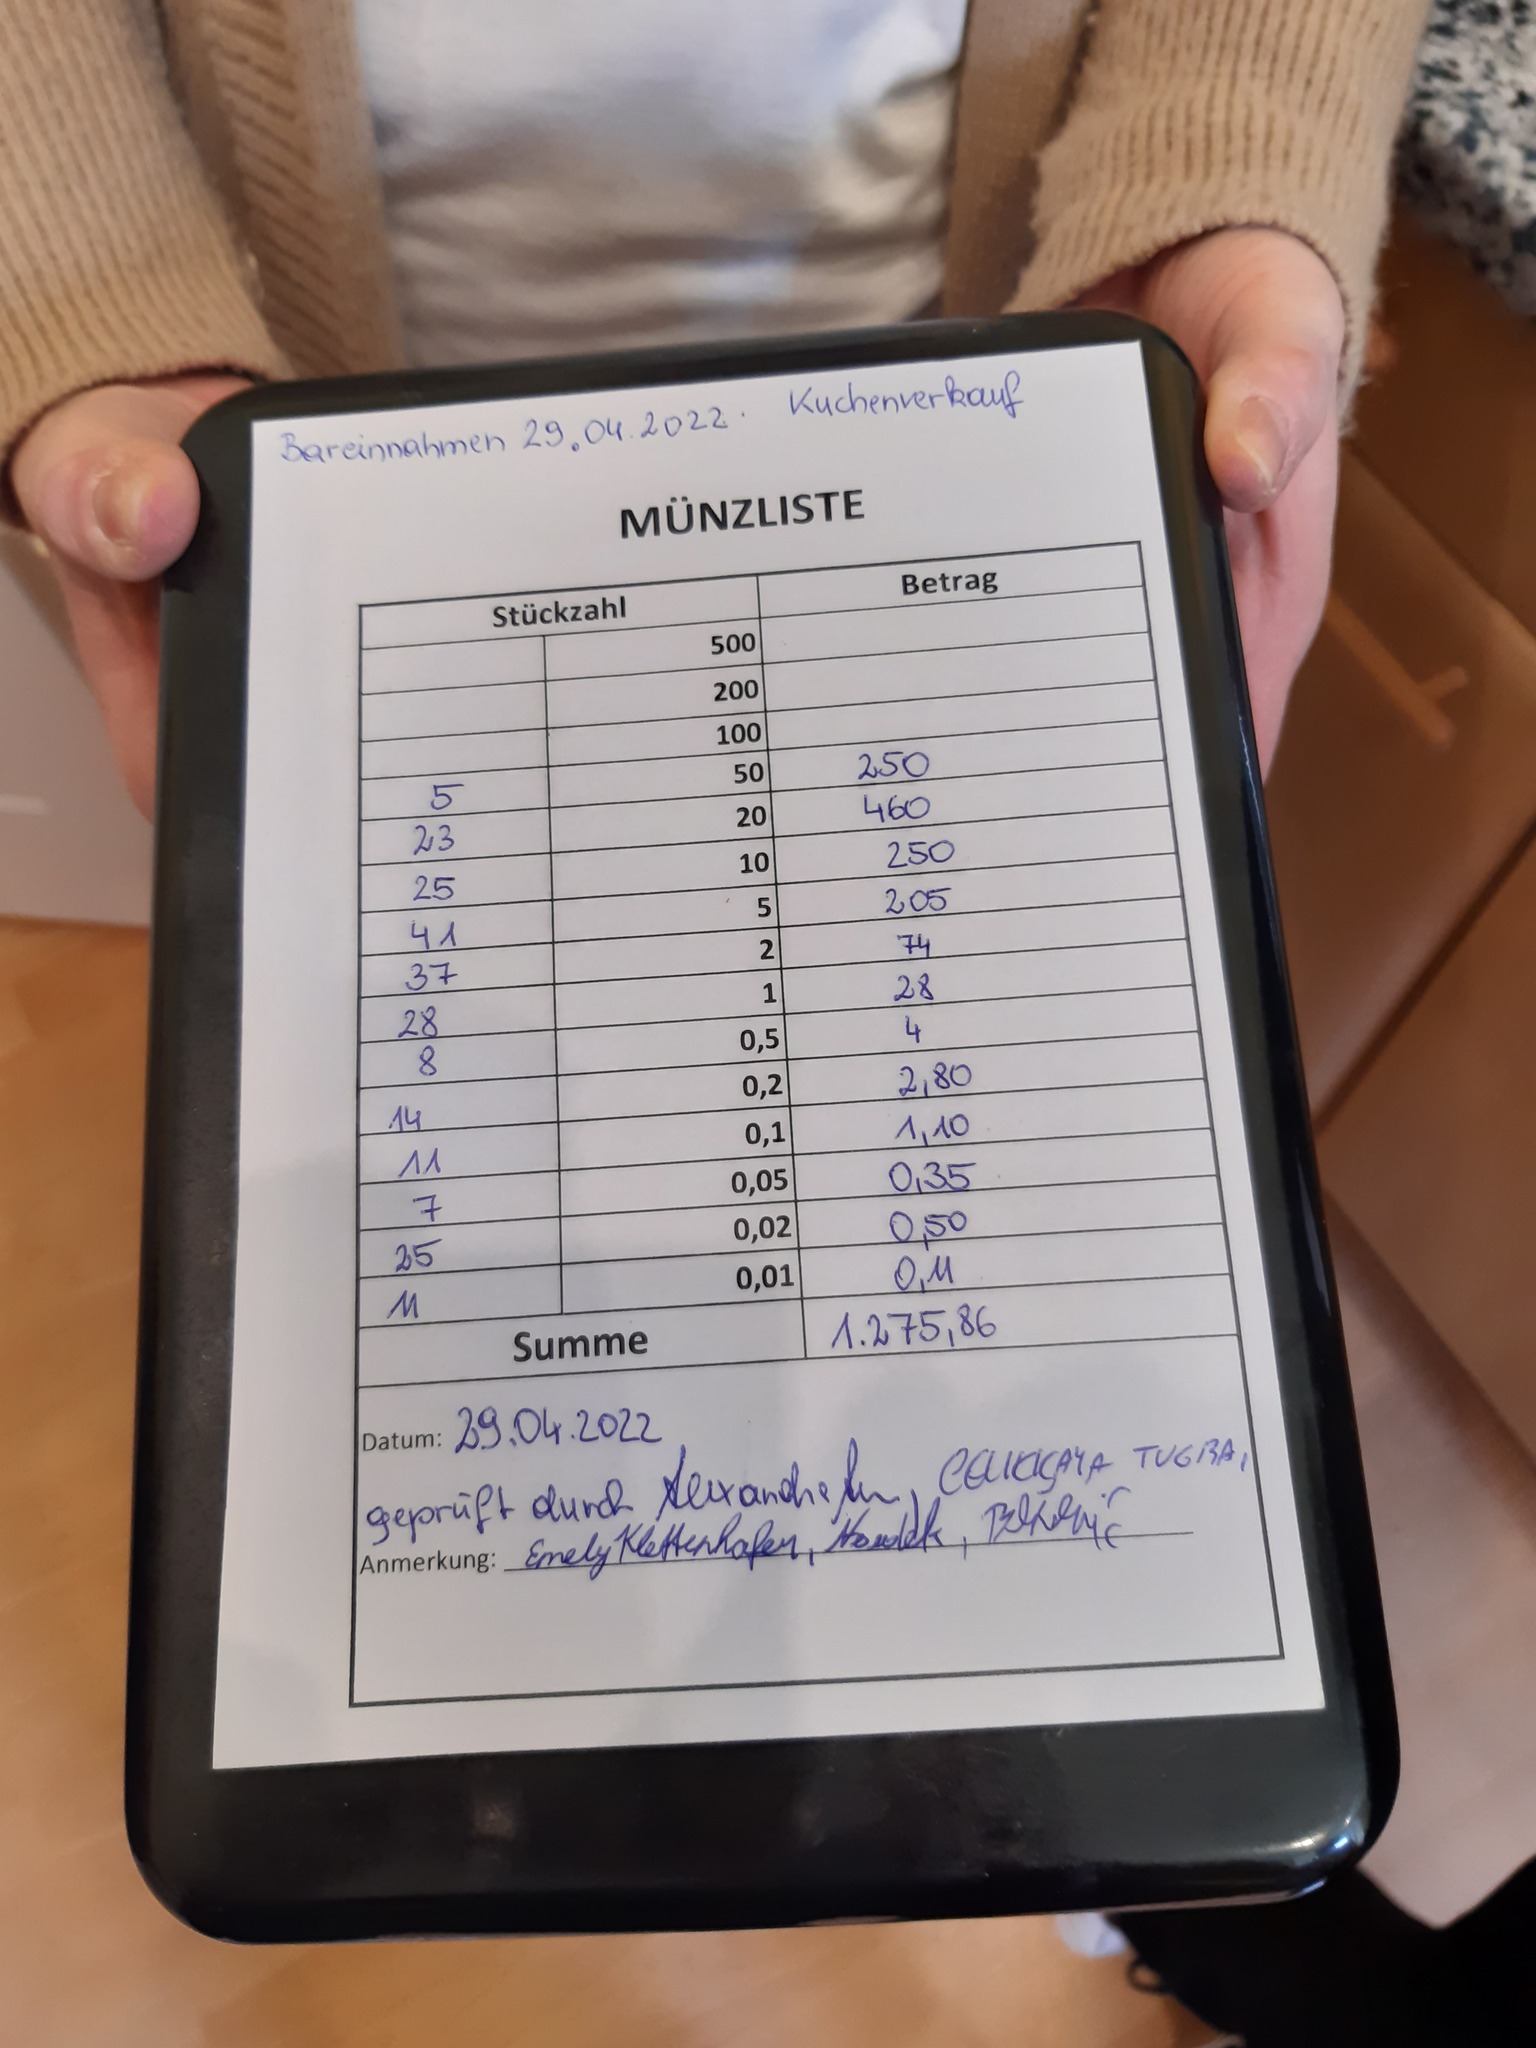 Bareinnahmen 29.04.2022. Kuchenverkauf
MÜNZLISTE
Stückzahl Betrag
500
200
100
5 50 250
23 20 460
25 10 250
41 5 205
37 2 74
28 1 28
8 0,5 4
14 0,2 2,80
11 0,1 1,10
7 0,05 0,35
25 0,02 0,50
11 0,01 0,11
Summe 1.275,86
Datum: 29.04.2022
geprüft durch TUGBA,
Anmerkung: Emely Klettenhofer,